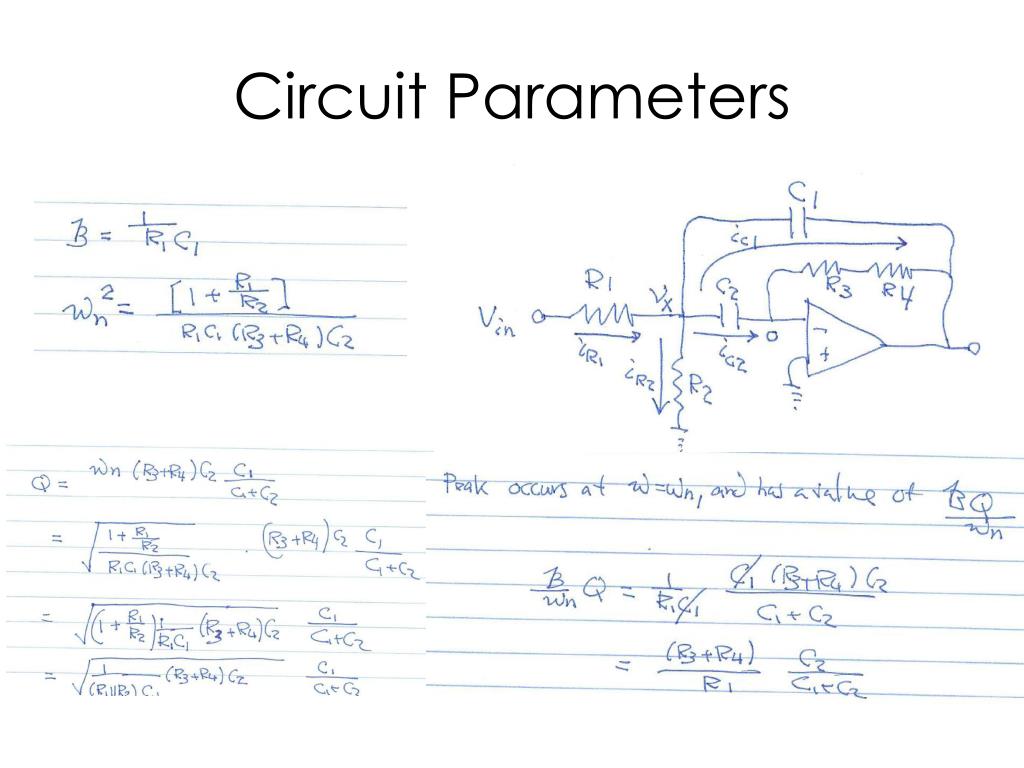 Circuit Parameters
B = 1 / R1 C1
ωn² = [1 + R1/R2] / R1 C1 (R3+R4) C2
C1
iC1
R3 R4
R1
Vx
C2
Vin
iR1
iR2
R2
iC2
-
+
Q = ωn (R3+R4) C2 C1 / C1+C2
= √((1 + R1/R2) / R1 C1 (R3+R4) C2) · (R3+R4) C2 C1 / C1+C2
= √((1 + R1/R2) 1/R1C1 (R3+R4) C2) C1 / C1+C2
= √(1 / (R1||R2) C1 (R3+R4) C2) C1 / C1+C2
Peak occurs at ω=ωn, and has a value of BQ / ωn
B/ωn Q = 1 / R1 C1 C1 (R3+R4) C2 / C1+C2
= (R3+R4) / R1 C2 / C1+C2